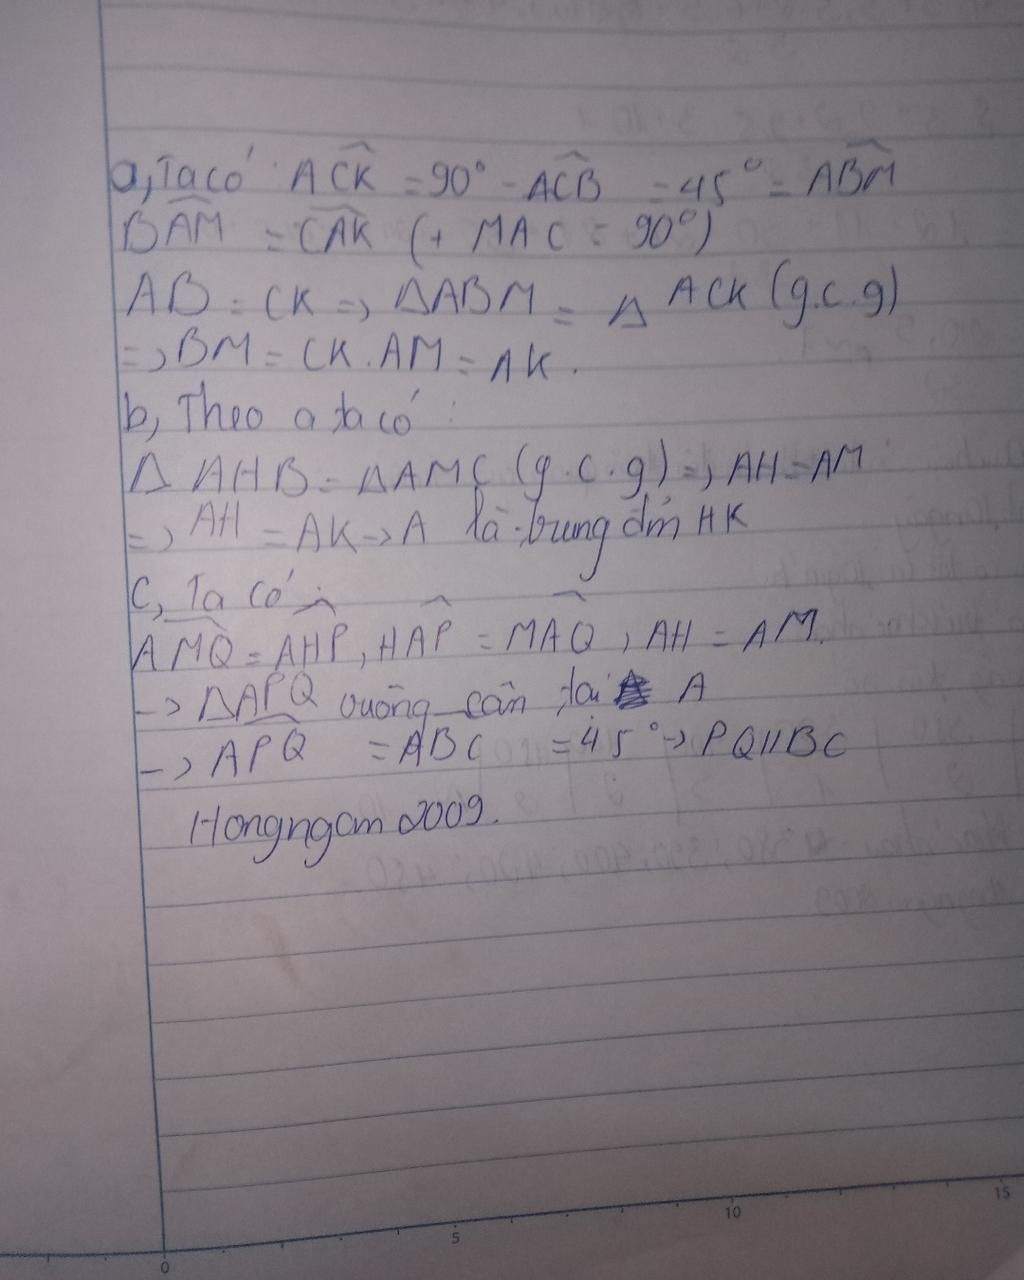 a, Ta có: ACK = 90° - ACB = 45° = ABM
BAM = CAK (+ MAC = 90°)
AB = CK => ΔABM = Δ ACK (g.c.g)
=> BM = CK. AM = AK.
b, Theo a ta có:
Δ AHB = ΔAMC (g.c.g) => AH = AM
=> AH = AK -> A là trung đm HK
C, Ta có:
AMQ = AHP, HAP = MAQ, AH = AM.
-> ΔAPQ vuông cân tại A
-> APQ = ABC = 45° -> PQ//BC
Hongngam 2009.
0 5 10 15